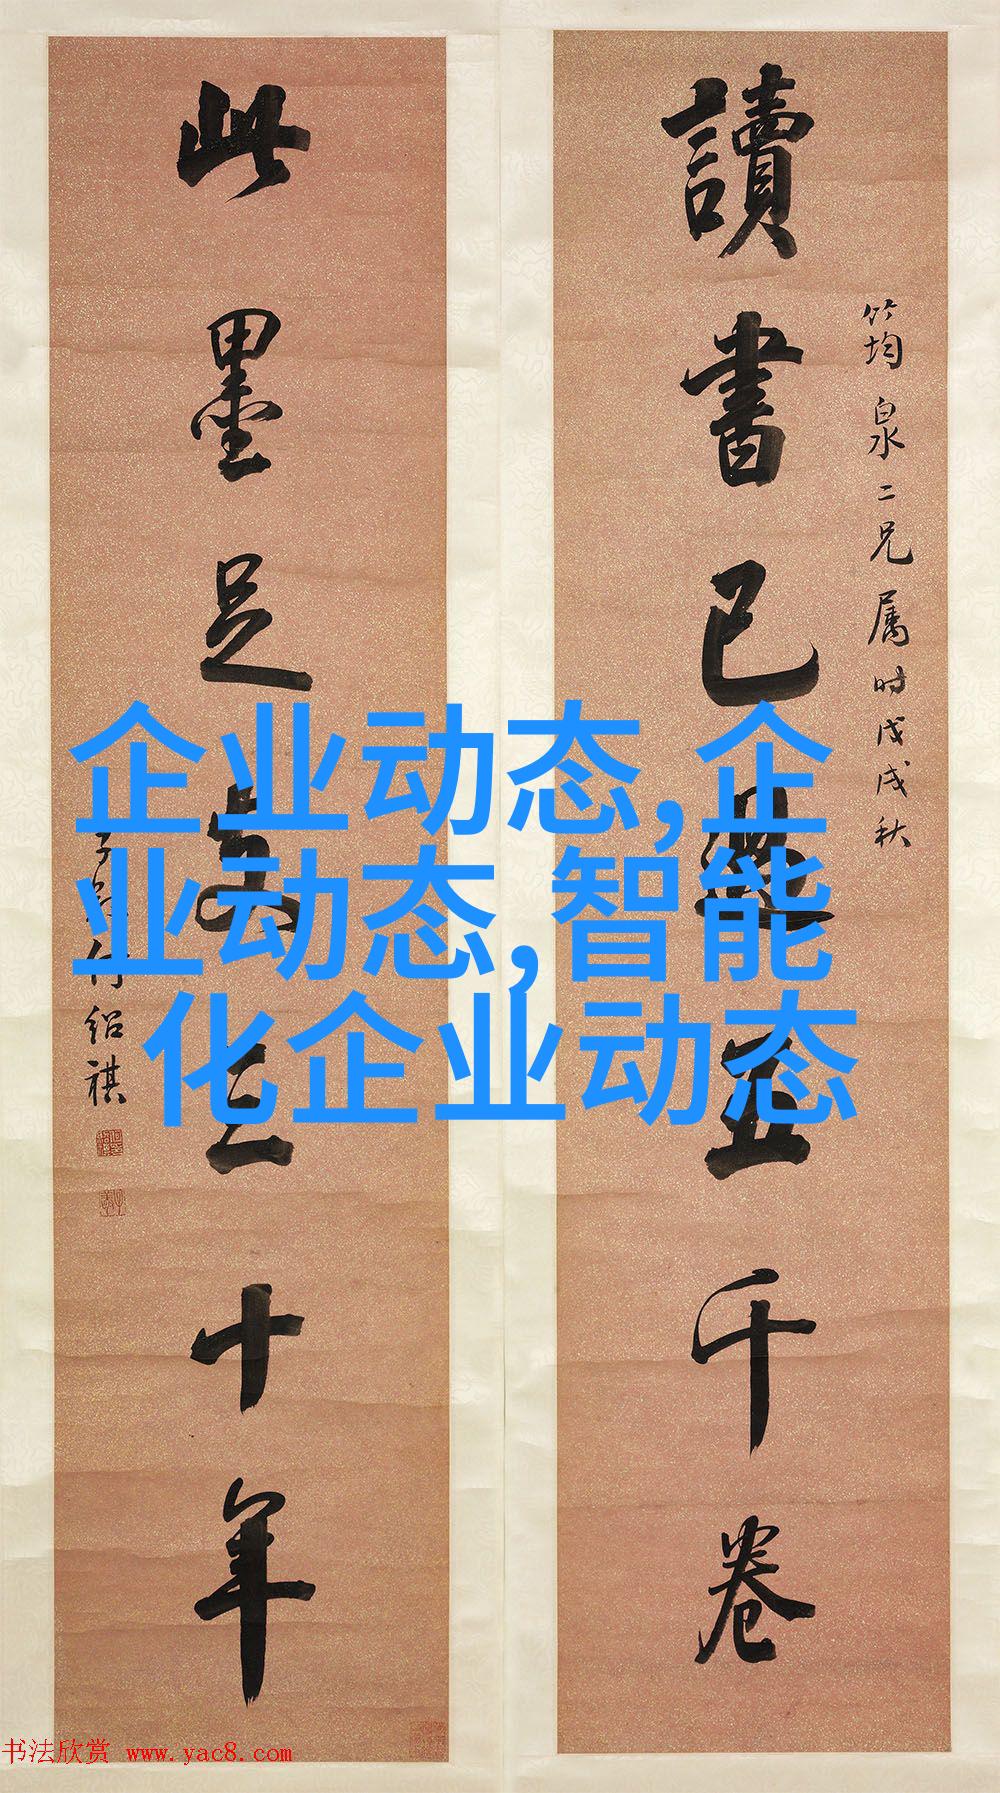 讀書已過五千卷
筠泉二兄属时戊戌秋
此墨足支三十年
何紹祺
企业动态,企
业动态,智能
化企业动态
书法欣赏 www.yac8.com